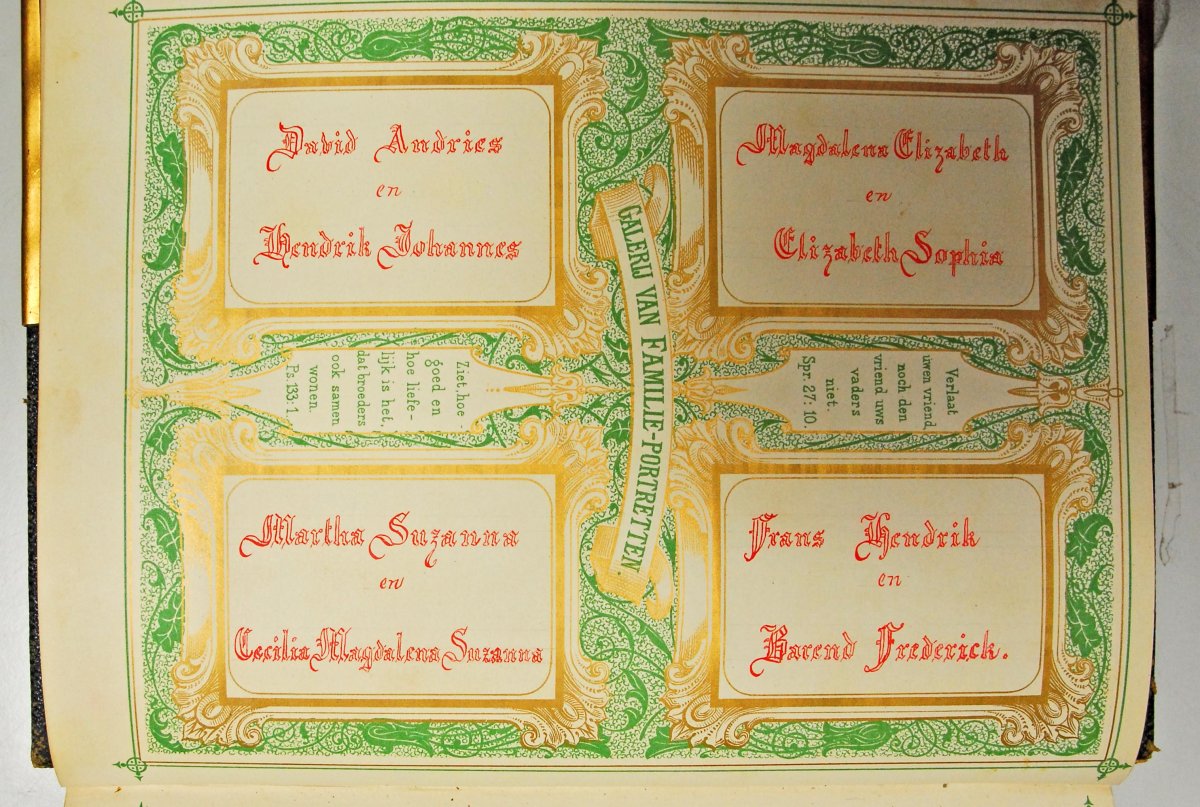 David Andries
en
Hendrik Johannes
Magdalena Elizabeth
en
Elizabeth Sophia
GALERIJ VAN FAMILIE-PORTRETTEN.
Ziet, hoe
goed en
hoe liefe-
lijk is het,
dat broeders
ook samen
wonen.
Ps. 133: 1
Verlaat
uwen vriend,
noch den
vriend uws
vaders
niet.
Spr. 27: 10.
Martha Suzanna
en
Cecilia Magdalena Suzanna
Frans Hendrik
en
Barend Frederick.